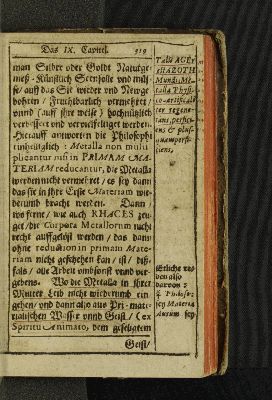 Das IX. Capitel. 519
man Silber oder Goldt Naturge-
meß-Künstlich Seensolle und müs-
se/ auff das Sie wieder und Newge
bohren/ Fruchtbarlich vermehret/
vnnd (auff ihre weise) hochnützlich
verbessert und vervielfeltiget werden.
Hierauff antworten die Philosophi
einhelliglich: Metalla non multi
plicantur nisi in PRIMAM MA-
TERIAM reducantur, die Metalla
werden nicht vermehret/ es sey dann
das sie in ihre Erste Materiam wie-
derumb bracht werden. Dann
wo ferne/ wie auch RHACES zeu-
get/die Corpora Metallorum nicht
recht auffgelöst werden/ das dann
ohne reduction in primam Mate-
riam nicht geschehen kan/ ist/ diß-
fals/ alle Arbeit umbsonst vnnd ver-
gebens. Wo die Metalla in ihrer
Mutter Leib nicht wiederumb ein-
gehen/ vnd dann also aus Pri-mate-
rialischen Wasser vnnd Geist/ (ex
Spiritu Animato, dem geseligtem
Geist/
TALIS AGER
est AZOTH
Mundi Me-
talla Physi-
co-artificiali-
ter regene-
rans, perfici-
ens & plus-
quamperfi-
ciens,
Etliche wol-
len also
darvon:
Philoso-
Materia
Aurum sey